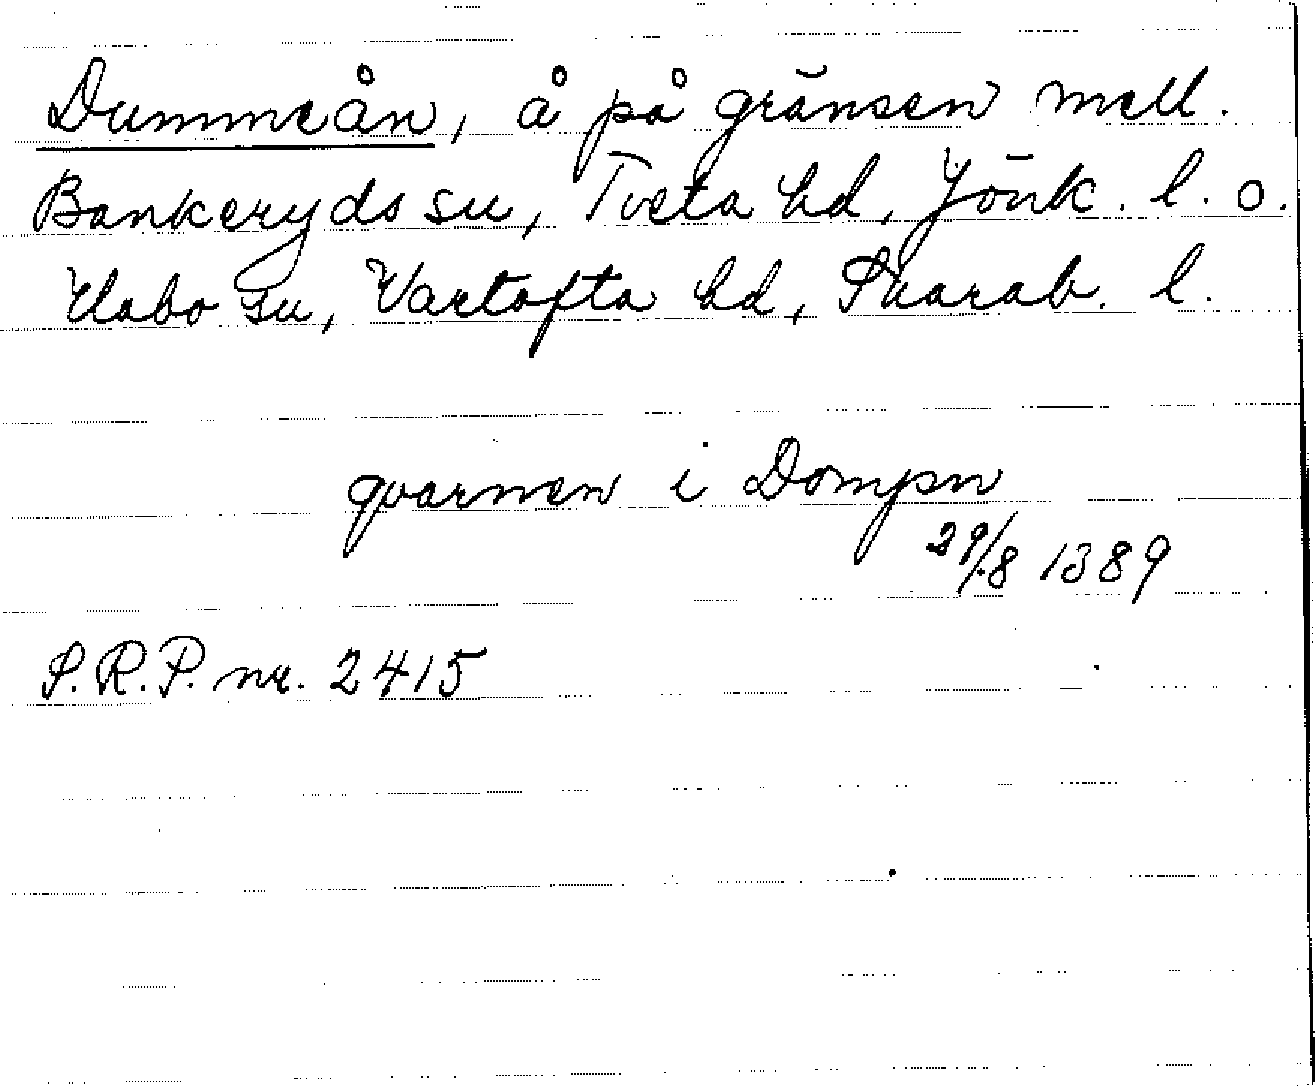 Dummeån, å på gränsen mell.
Bankeryds sn, Tveta hd, Jönk. l. o.
Habo sn, Vartofta hd, Skarab. l.
qvarnen i Dompn
29/8 1389
S.R.P. nr. 2415